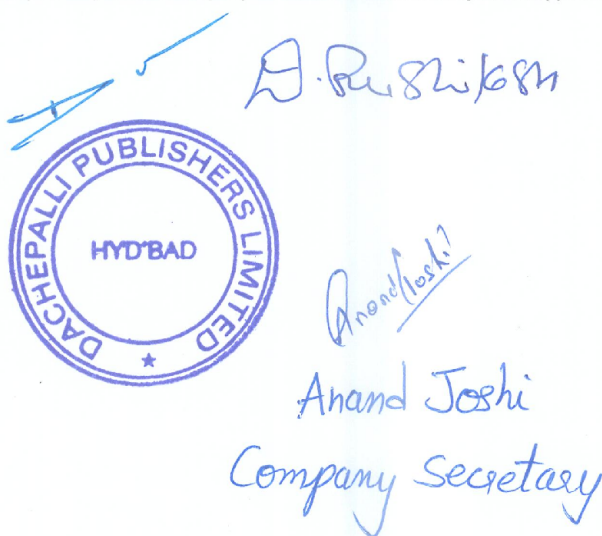 D. Rushikesh
DACHEPALLI PUBLISHERS LIMITED
HYD'BAD
★
Anand Joshi
Anand Joshi
Company Secretary